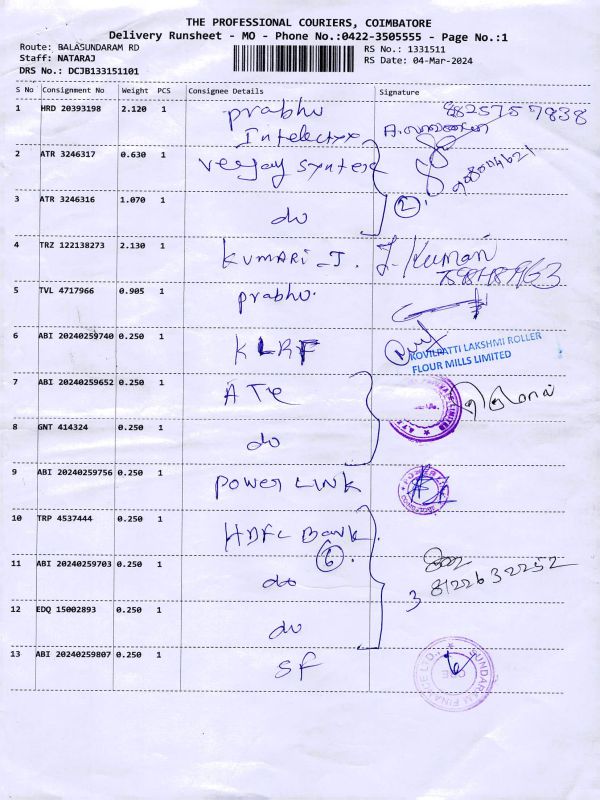 THE PROFESSIONAL COURIERS, COIMBATORE
Delivery Runsheet - MO - Phone No.:0422-3505555 - Page No.:1
Route: BALASUNDARAM RD
Staff: NATARAJ
DRS No.: DCJB133151101
RS No.: 1331511
RS Date: 04-Mar-2024
S No Consignment No Weight PCS Consignee Details Signature
1 HRD 20393198 2.120 1 prabhu 9825757838
Intelectyx
2 ATR 3246317 0.630 1
3 ATR 3246316 1.070 1 do 2
4 TRZ 122138273 2.130 1 KUMARI-J. J. Kumari
5 TVL 4717966 0.905 1 prabhu.
6 ABI 20240259740 0.250 1 KLRF
KOVILPATTI LAKSHMI ROLLER
FLOUR MILLS LIMITED
7 ABI 20240259652 0.250 1 ATE
8 GNT 414324 0.250 1 do
9 ABI 20240259756 0.250 1 POWER LINK
10 TRP 4537444 0.250 1 HDFC Bank.
6
11 ABI 20240259703 0.250 1 do 8122632252
3
12 EDQ 15002893 0.250 1 do
13 ABI 20240259807 0.250 1 SF SUNDARAM FINANCE LTD.